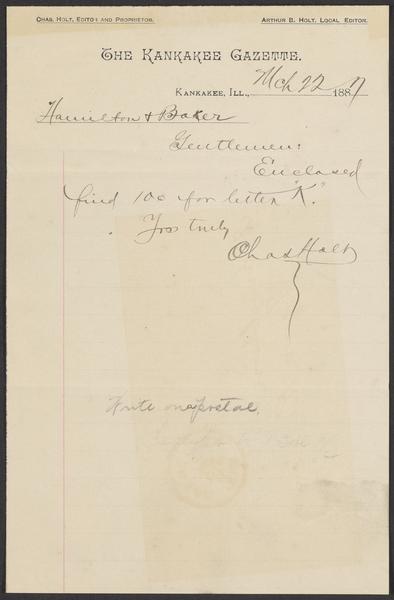 Chas. Holt, Editor and Proprietor. Arthur B. Holt, Local Editor.
The Kankakee Gazette.
Kankakee, Ill., Mch 22 1887
Hamilton & Baker
Gentlemen:
Enclosed
find 10c for letter "K."
Yrs truly
Chas Holt
Wrote on postal.